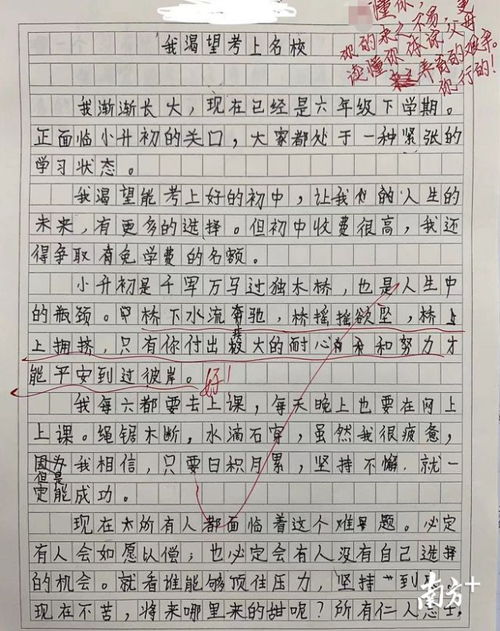 懂你，
你的来之不易，父母
读懂你，张家
养育的艰辛。
你行的！
我渴望考上名校
我渐渐长大，现在已经是六年级下学期。
正面临小升初的关口，大家都处于一种紧张的
学习状态。
我渴望能考上好的初中，让我们的人生的
未来，有更多的选择。但初中收费很高，我还
得争取有免学费的名额。
小升初是千军万马过独木桥，也是人生中
的瓶颈。桥下水流奔驰，桥摇摇欲坠，桥上
上拥挤，只有你付出极大的耐心和努力才
能平安到过彼岸。好！
我每六都要去上课，每天晚上也要在网上
上课。绳锯木断，水滴石穿，虽然我很疲惫，
但是我相信，只要日积月累，坚持不懈，就一
定能成功。
现在所有人都面临着这个难题。必定
有人会如愿以偿；也必定会有人没有自己选择
的机会。就看谁能够顶住压力，坚持到
现在不苦，将来哪里来的甜呢？所有仁人志士，
南方+